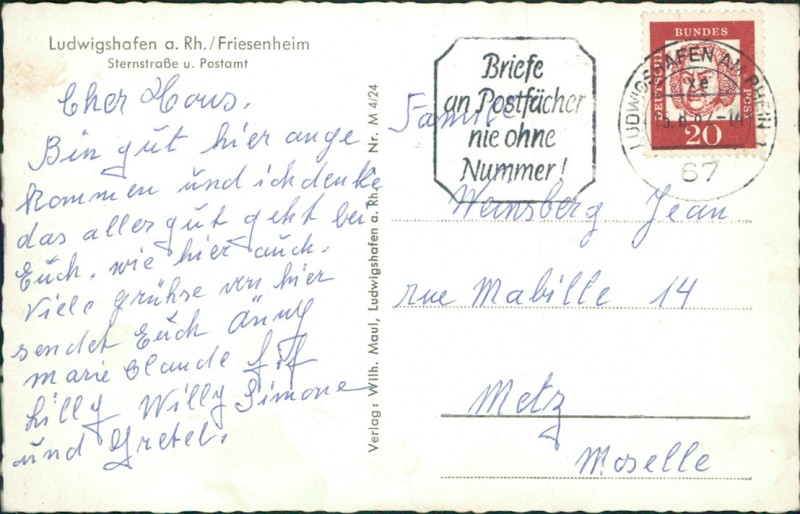 Ludwigshafen a. Rh./Friesenheim
Sternstraße u. Postamt
Cher Hous.
Bin gut hier ange
kommen und ich denke
das aller gut geht bei
Euch, wie hier auch.
Viele grühse von hier
sendet Euch Änny
Marie Claude
Lilly Willy Simone
und Gretel.
Verlag: Wilh. Maul, Ludwigshafen a. Rh. Nr. M 4/24
Briefe
an Postfächer
nie ohne
Nummer!
DEUTSCHE BUNDESPOST
20
LUDWIGSHAFEN AM RHEIN 1
67
Familie
Weinsberg Jean
rue Mabille 14
Metz
Moselle